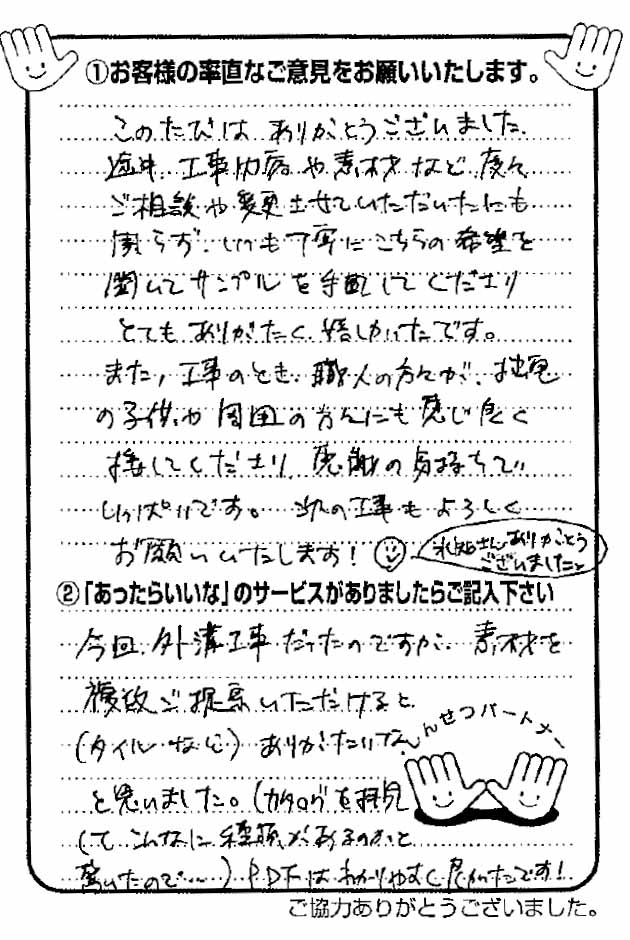 ①お客様の率直なご意見をお願いいたします。
このたびは ありがとうございました。
途中、工事内容や素材など 度々
ご相談や変更させていただいたにも
関らず、いつも丁寧にこちらの希望を
聞いてサンプルを手配してくださり
とてもありがたく 嬉しかったです。
また、工事のとき、職人の方々が、拙宅
の子供や周囲の方々にも感じ良く
接してくださり、感謝の気持ちで
いっぱいです。次の工事もよろしく
お願いいたします!
さんありがとう
ございました。
②「あったらいいな」のサービスがありましたらご記入下さい
今回、外溝工事だったのですが、素材を
複数ご提案いただけると
(タイルなど) ありがたいな
んせつパートナー
と思いました。(カタログを拝見
して こんなに種類があるのかと
驚いたので……) PDFはわかりやすく良かったです!
ご協力ありがとうございました。